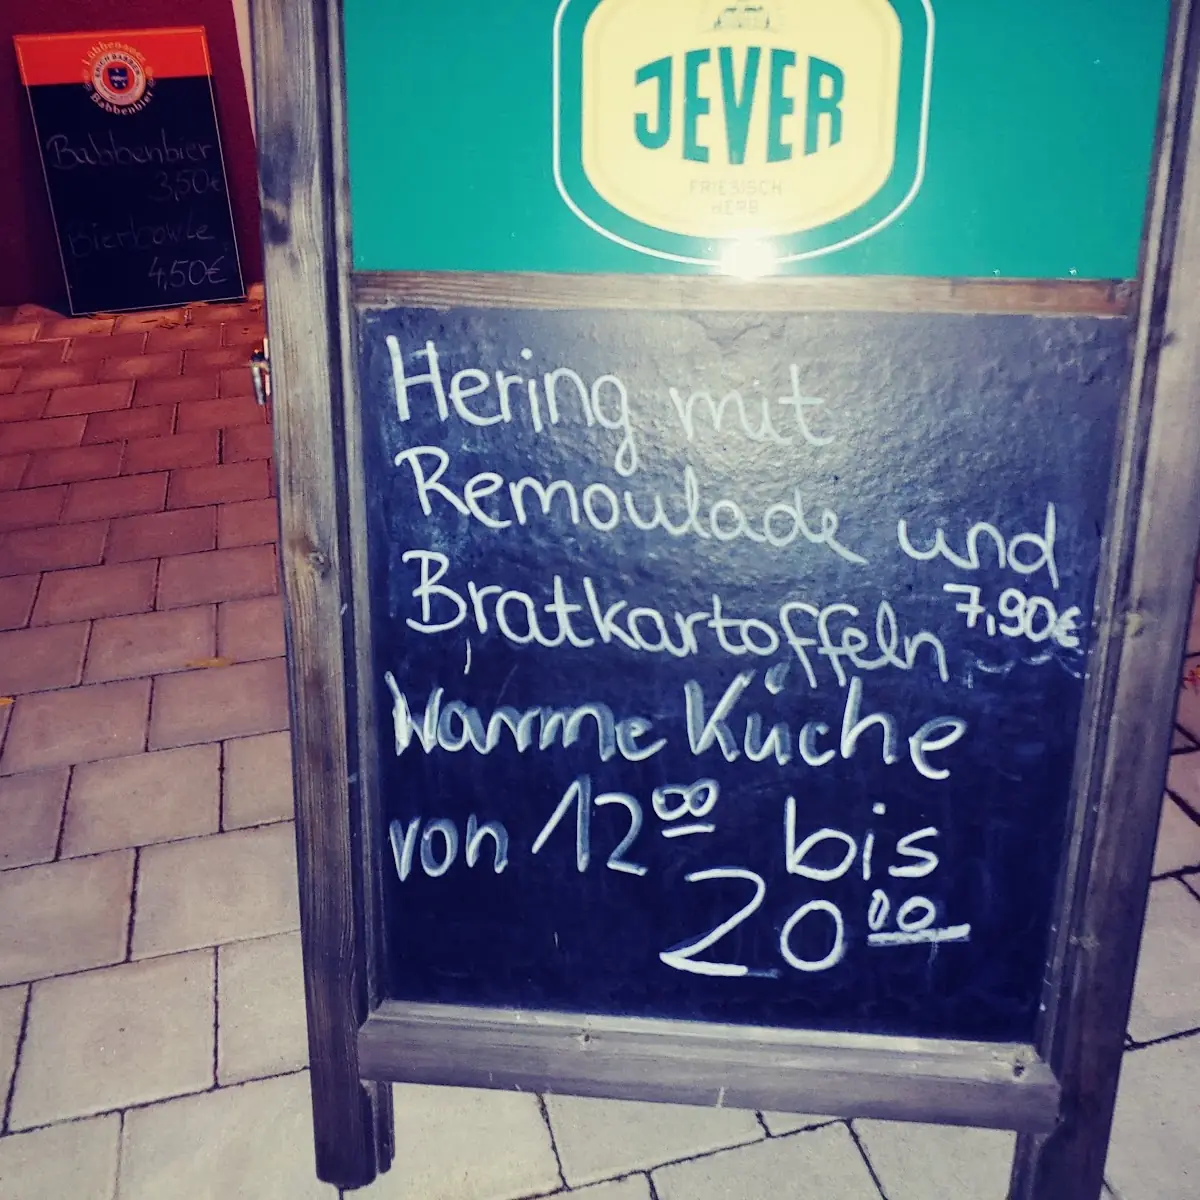 Lübbenauer
BABBEN
Babbenbier
Babbenbier
3,50€
Bierbowle
4,50€
JEVER
FRIESISCH
HERB
Hering mit
Remoulade und
Bratkartoffeln 7,90€
Warme Küche
von 12⁰⁰ bis
20⁰⁰